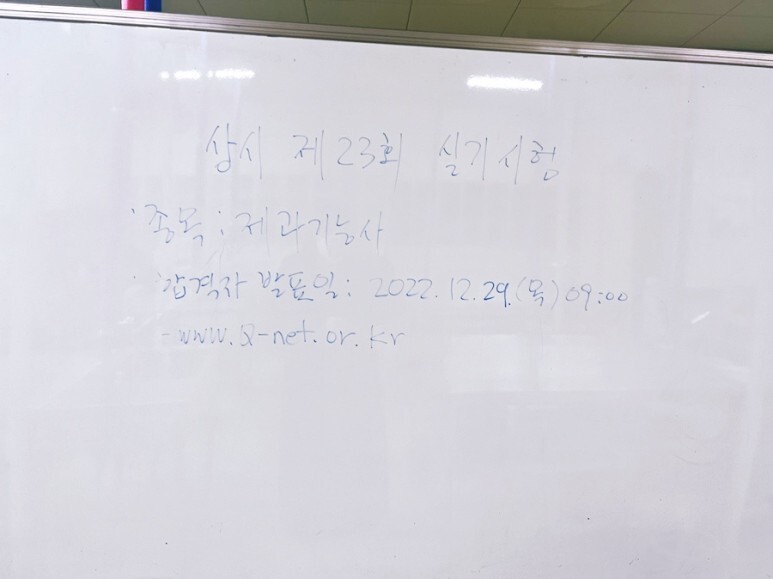 상시 제23회 실기시험
· 종목 : 제과기능사
· 합격자 발표일 : 2022.12.29.(목) 09:00
- www.Q-net.or.kr